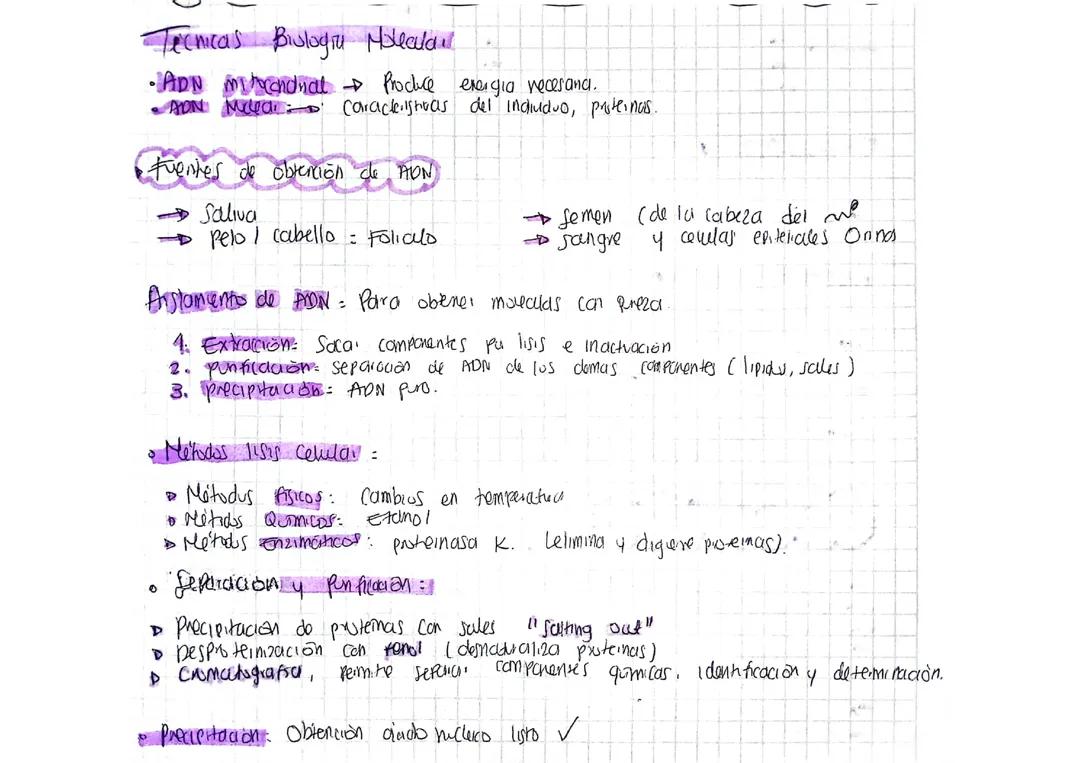 Técnicas Biología Molecular
• ADN mitocondrial → Produce energía necesaria.
• ADN Nuclear → características del individuo, proteínas.
Fuentes de obtención de ADN
→ Saliva
→ pelo / cabello = Folículo
→ semen (de la cabeza del
→ sangre y celulas epiteliales Orina
Aislamiento de ADN = Para obtener moleculas con pureza.
1. Extracción: Sacar componentes por lisis e inactivación
2. purificación: separación de ADN de los demas componentes (lipidos, sales)
3. precipitación = ADN puro.
• Métodos lisis celular =
▷ Métodos físicos: Cambios en temperatura
▷ Métodos Químicos: Etanol
▷ Métodos enzimáticos: proteinasa K. (elimina y digiere proteinas).
• Separación y purificación:
▷ Precipitación de proteinas con sales "salting out"
▷ Desproteinización con fenol (desnaturaliza proteinas)
▷ Cromatografía, permite separar componentes quimicos, identificación y determinación.
• Precipitación: Obtención acido nucleico listo ✓